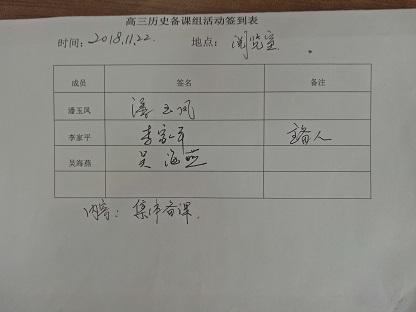 高三历史备课组活动签到表
时间：2018.11.22. 地点：阅览室.
成员 签名 备注
潘玉凤 潘玉凤
李家平 李家平 主备人
吴海燕 吴海燕
内容：集体备课.